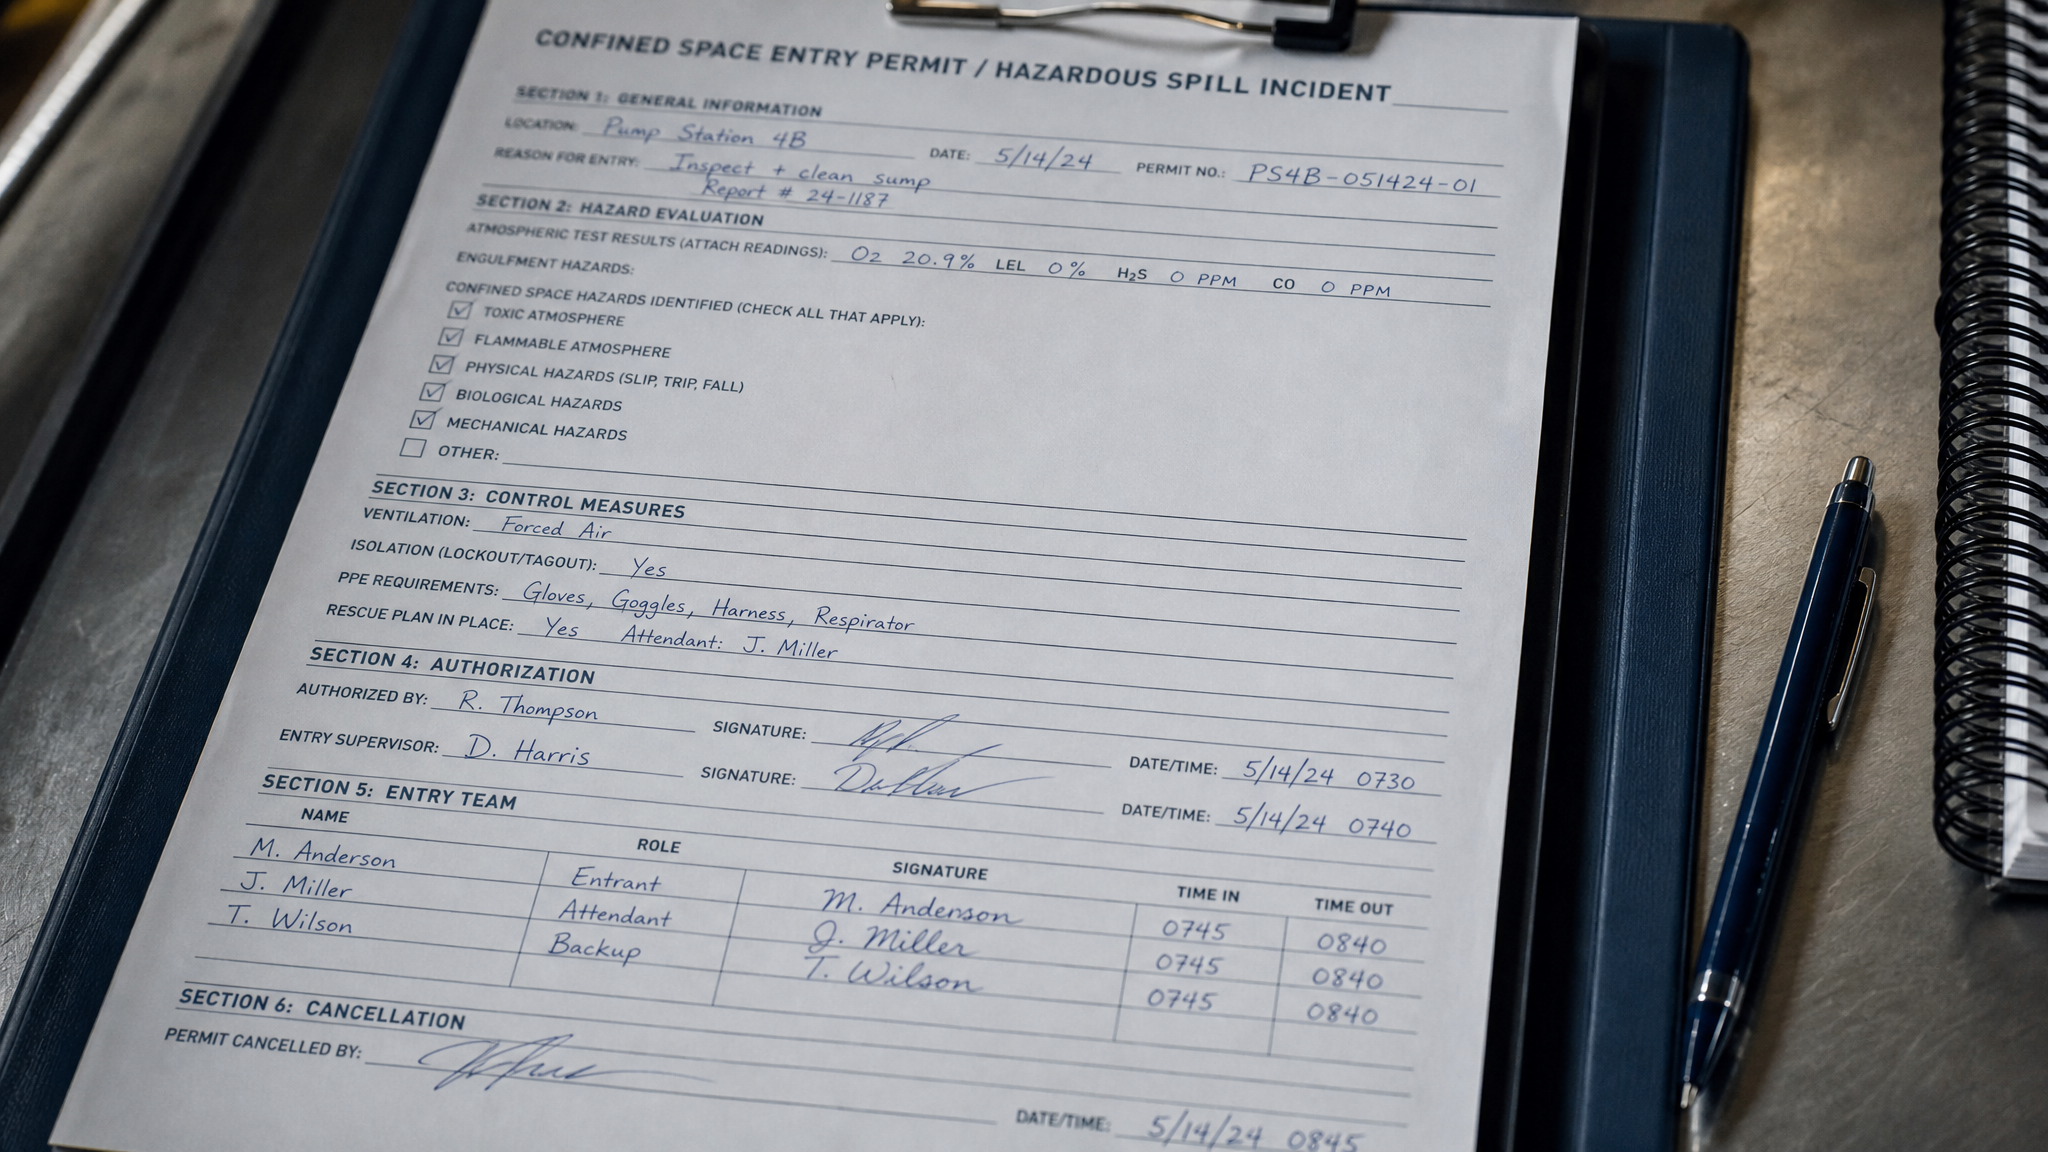 CONFINED SPACE ENTRY PERMIT / HAZARDOUS SPILL INCIDENT
SECTION 1: GENERAL INFORMATION
LOCATION: Pump Station 4B DATE: 5/14/24 PERMIT NO.: PS4B-051424-01
REASON FOR ENTRY: Inspect + clean sump
Report # 24-1187
SECTION 2: HAZARD EVALUATION
ATMOSPHERIC TEST RESULTS (ATTACH READINGS): O2 20.9% LEL 0% H₂S 0 PPM CO 0 PPM
ENGULFMENT HAZARDS:
CONFINED SPACE HAZARDS IDENTIFIED (CHECK ALL THAT APPLY):
☑ TOXIC ATMOSPHERE
☑ FLAMMABLE ATMOSPHERE
☑ PHYSICAL HAZARDS (SLIP, TRIP, FALL)
☑ BIOLOGICAL HAZARDS
☑ MECHANICAL HAZARDS
☐ OTHER:
SECTION 3: CONTROL MEASURES
VENTILATION: Forced Air
ISOLATION (LOCKOUT/TAGOUT): Yes
PPE REQUIREMENTS: Gloves, Goggles, Harness, Respirator
RESCUE PLAN IN PLACE: Yes Attendant: J. Miller
SECTION 4: AUTHORIZATION
AUTHORIZED BY: R. Thompson SIGNATURE: DATE/TIME: 5/14/24 0730
ENTRY SUPERVISOR: D. Harris SIGNATURE: DATE/TIME: 5/14/24 0740
SECTION 5: ENTRY TEAM
NAME ROLE SIGNATURE TIME IN TIME OUT
M. Anderson Entrant M. Anderson 0745 0840
J. Miller Attendant J. Miller 0745 0840
T. Wilson Backup T. Wilson 0745 0840
SECTION 6: CANCELLATION
PERMIT CANCELLED BY: DATE/TIME: 5/14/24 0845